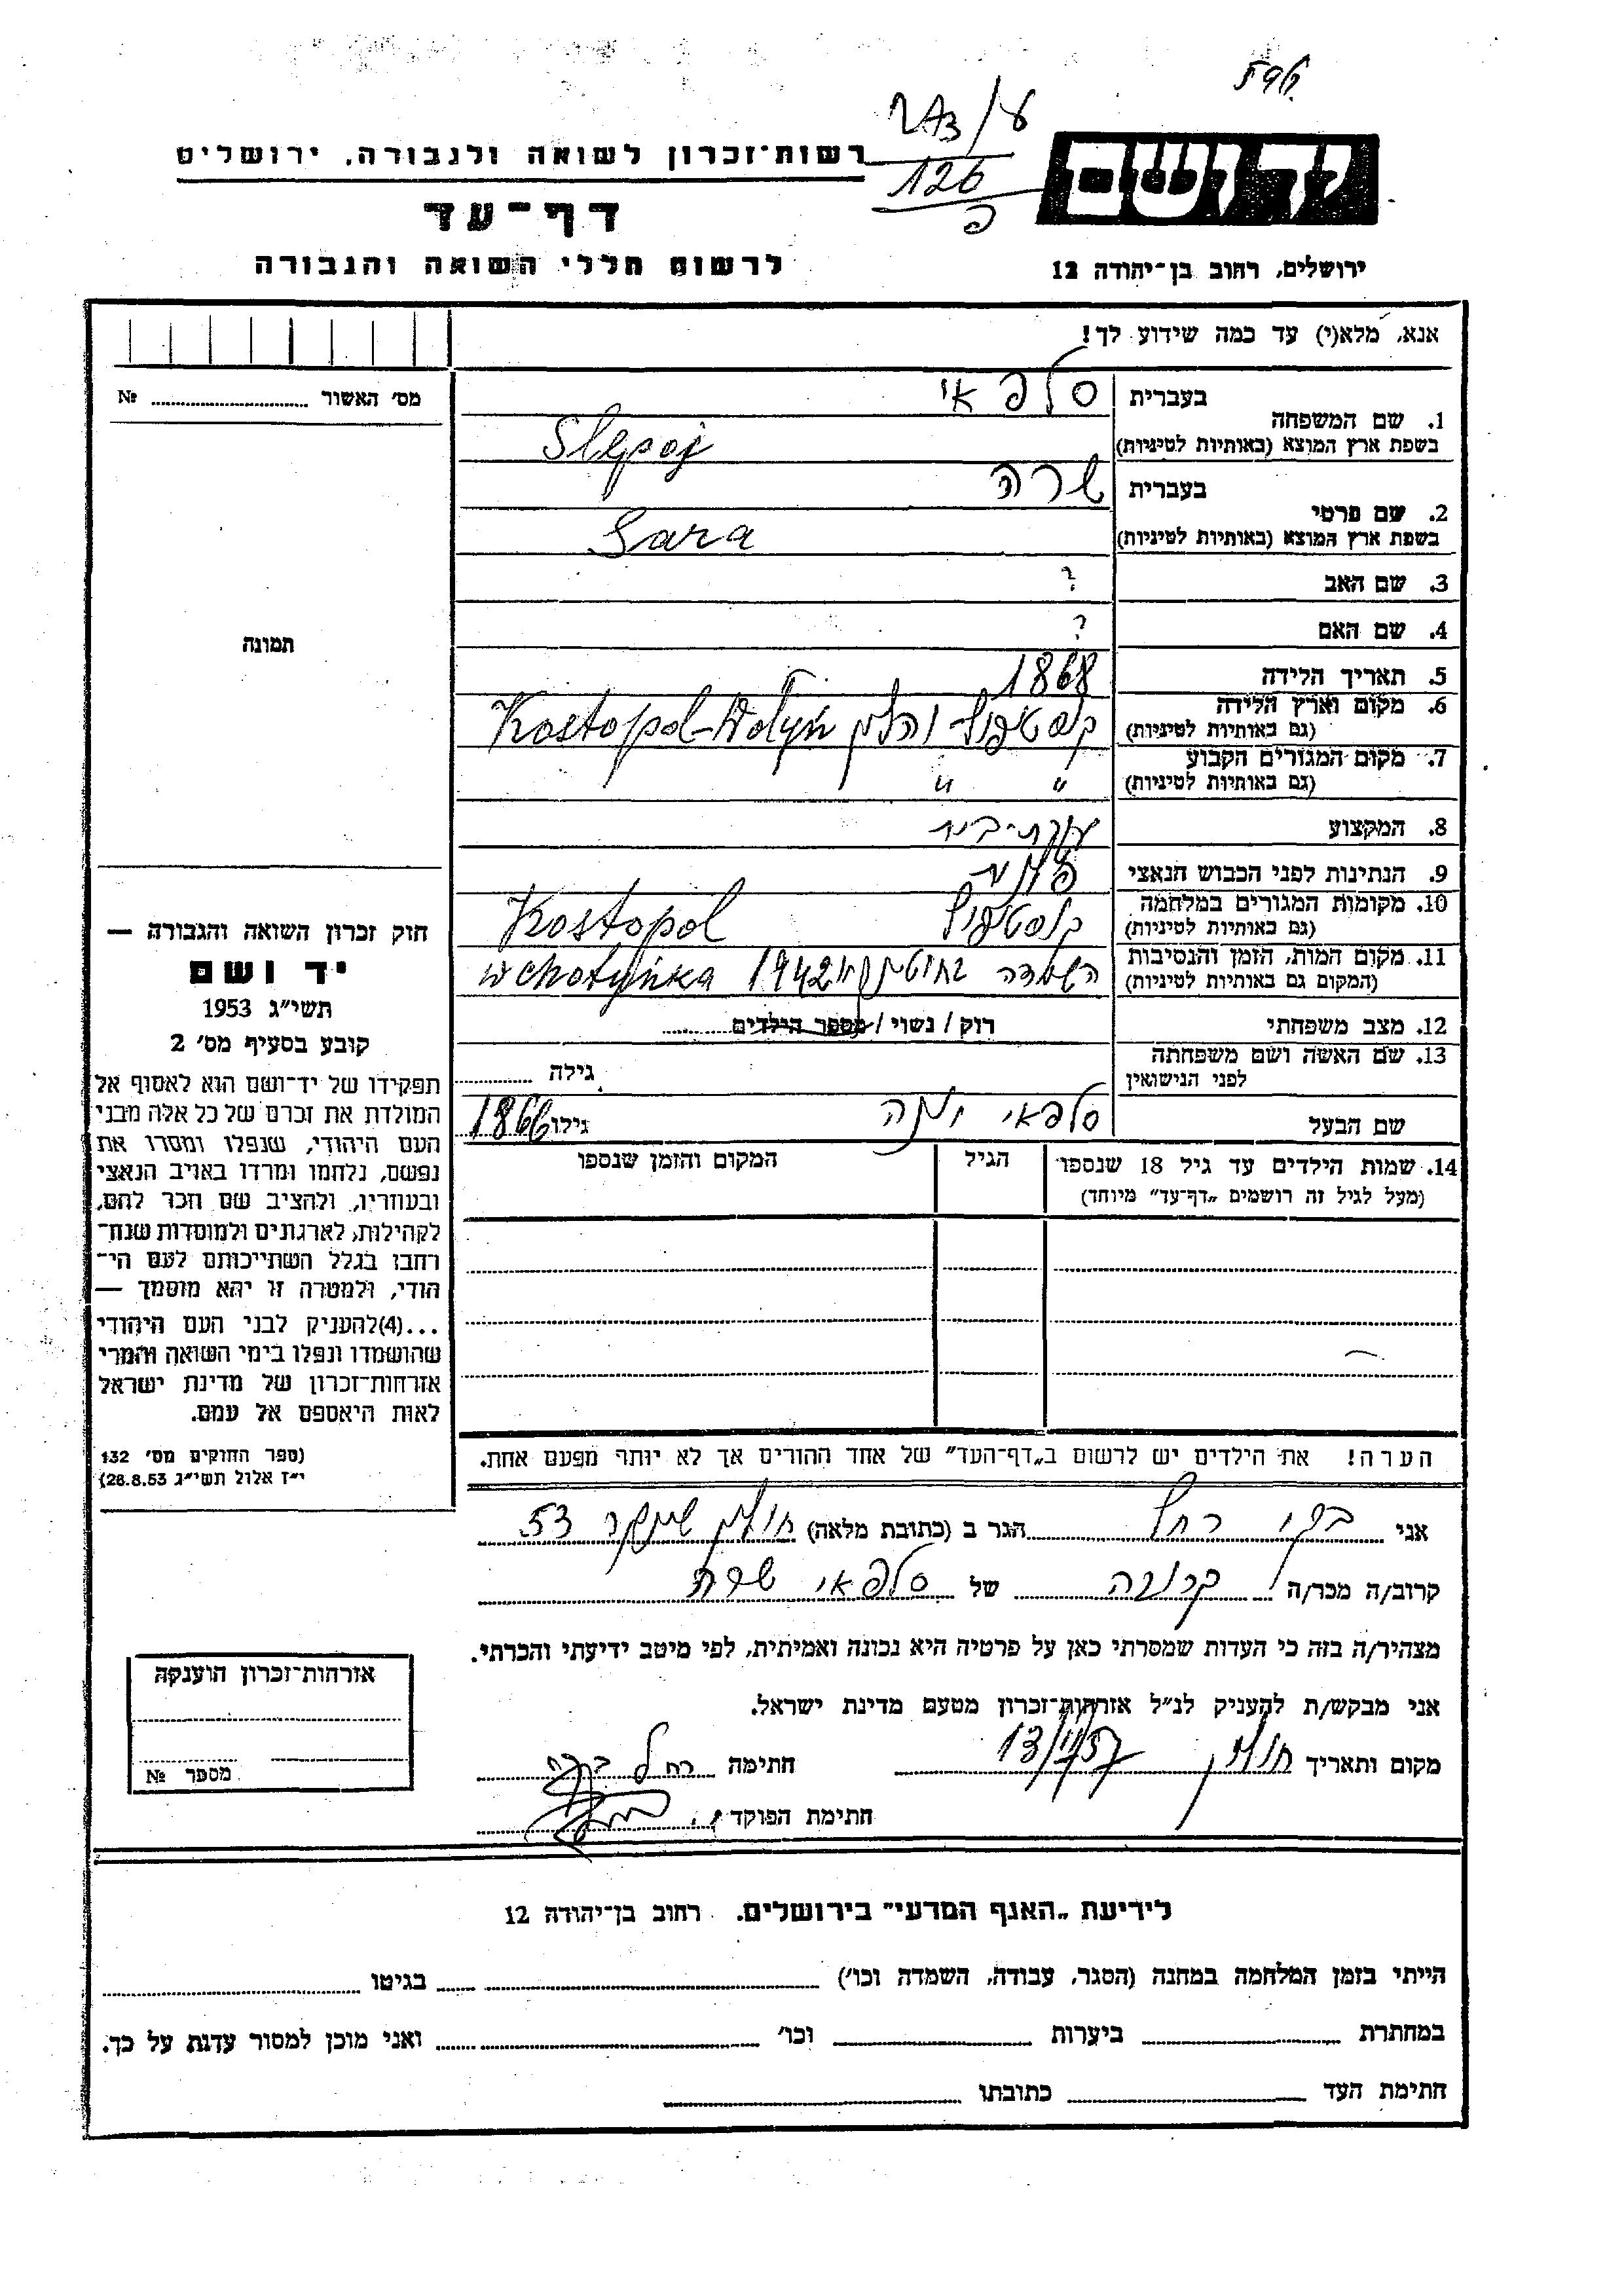 יד ושם
126
רשות־זכרון לשואה ולגבורה, ירושלים
דף־עד
לרשום חללי השואה והגבורה
ירושלים, רחוב בן־יהודה 12
אנא, מלא(י) עד כמה שידוע לך!
מס׳ האשור № ........
1. שם המשפחה
בעברית סלפאי
בשפת ארץ המוצא (באותיות לטיניות) Slepoj
2. שם פרטי
בעברית שרה
בשפת ארץ המוצא (באותיות לטיניות) Sara
3. שם האב ?
4. שם האם ?
5. תאריך הלידה 1868
6. מקום וארץ הלידה (גם באותיות לטיניות) קוסטופול ווהלין Kostopol-Wołyń
7. מקום המגורים הקבוע (גם באותיות לטיניות) " "
8. המקצוע עקרת-בית
9. הנתינות לפני הכבוש הנאצי
10. מקומות המגורים במלחמה (גם באותיות לטיניות) קוסטופול Kostopol
11. מקום המות, הזמן והנסיבות (המקום גם באותיות לטיניות) השמדה 1942 w Chotyńka
12. מצב משפחתי רוק / נשוי / מספר הילדים........
13. שם האשה ושם משפחתה לפני הנישואין גילה ........
שם הבעל סלפאי יונה גילו 1866
14. שמות הילדים עד גיל 18 שנספו (מעל לגיל זה רושמים „דף־עד” מיוחד)
הגיל
המקום והזמן שנספו
תמונה
חוק זכרון השואה והגבורה —
יד ושם
תשי״ג 1953
קובע בסעיף מס׳ 2
תפקידו של יד־ושם הוא לאסוף אל
המולדת את זכרם של כל אלה מבני
העם היהודי, שנפלו ומסרו את
נפשם, נלחמו ומרדו באויב הנאצי
ובעוזריו, ולהציב שם וזכר להם,
לקהילות, לארגונים ולמוסדות שנח־
רבו בגלל השתייכותם לעם הי־
הודי, ולמטרה זו יהא מוסמך —
...(4)להעניק לבני העם היהודי
שהושמדו ונפלו בימי השואה והמרי
אזרחות־זכרון של מדינת ישראל
לאות היאספם אל עמם.
(ספר החוקים מס׳ 132
י״ז אלול תשי״ג 28.8.53)
הערה! את הילדים יש לרשום ב„דף־העד” של אחד ההורים אך לא יותר מפעם אחת.
אני רחל הגר ב (כתובת מלאה) חולון 53
קרוב/ה מכר/ה קרובה של סלפאי שרה
מצהיר/ה בזה כי העדות שמסרתי כאן על פרטיה היא נכונה ואמיתית, לפי מיטב ידיעתי והכרתי.
אני מבקש/ת להעניק לנ״ל אזרחות־זכרון מטעם מדינת ישראל.
מקום ותאריך חולון חתימה רחל
חתימת הפוקד
אזרחות־זכרון הוענקה
מספר №
לידיעת „האגף המדעי” בירושלים. רחוב בן־יהודה 12
הייתי בזמן המלחמה במחנה (הסגר, עבודה, השמדה וכו׳) ........ בגיטו ........
במחתרת ........ ביערות ........ וכו׳ ........ ואני מוכן למסור עדות על כך.
חתימת העד ........ כתובתו ........